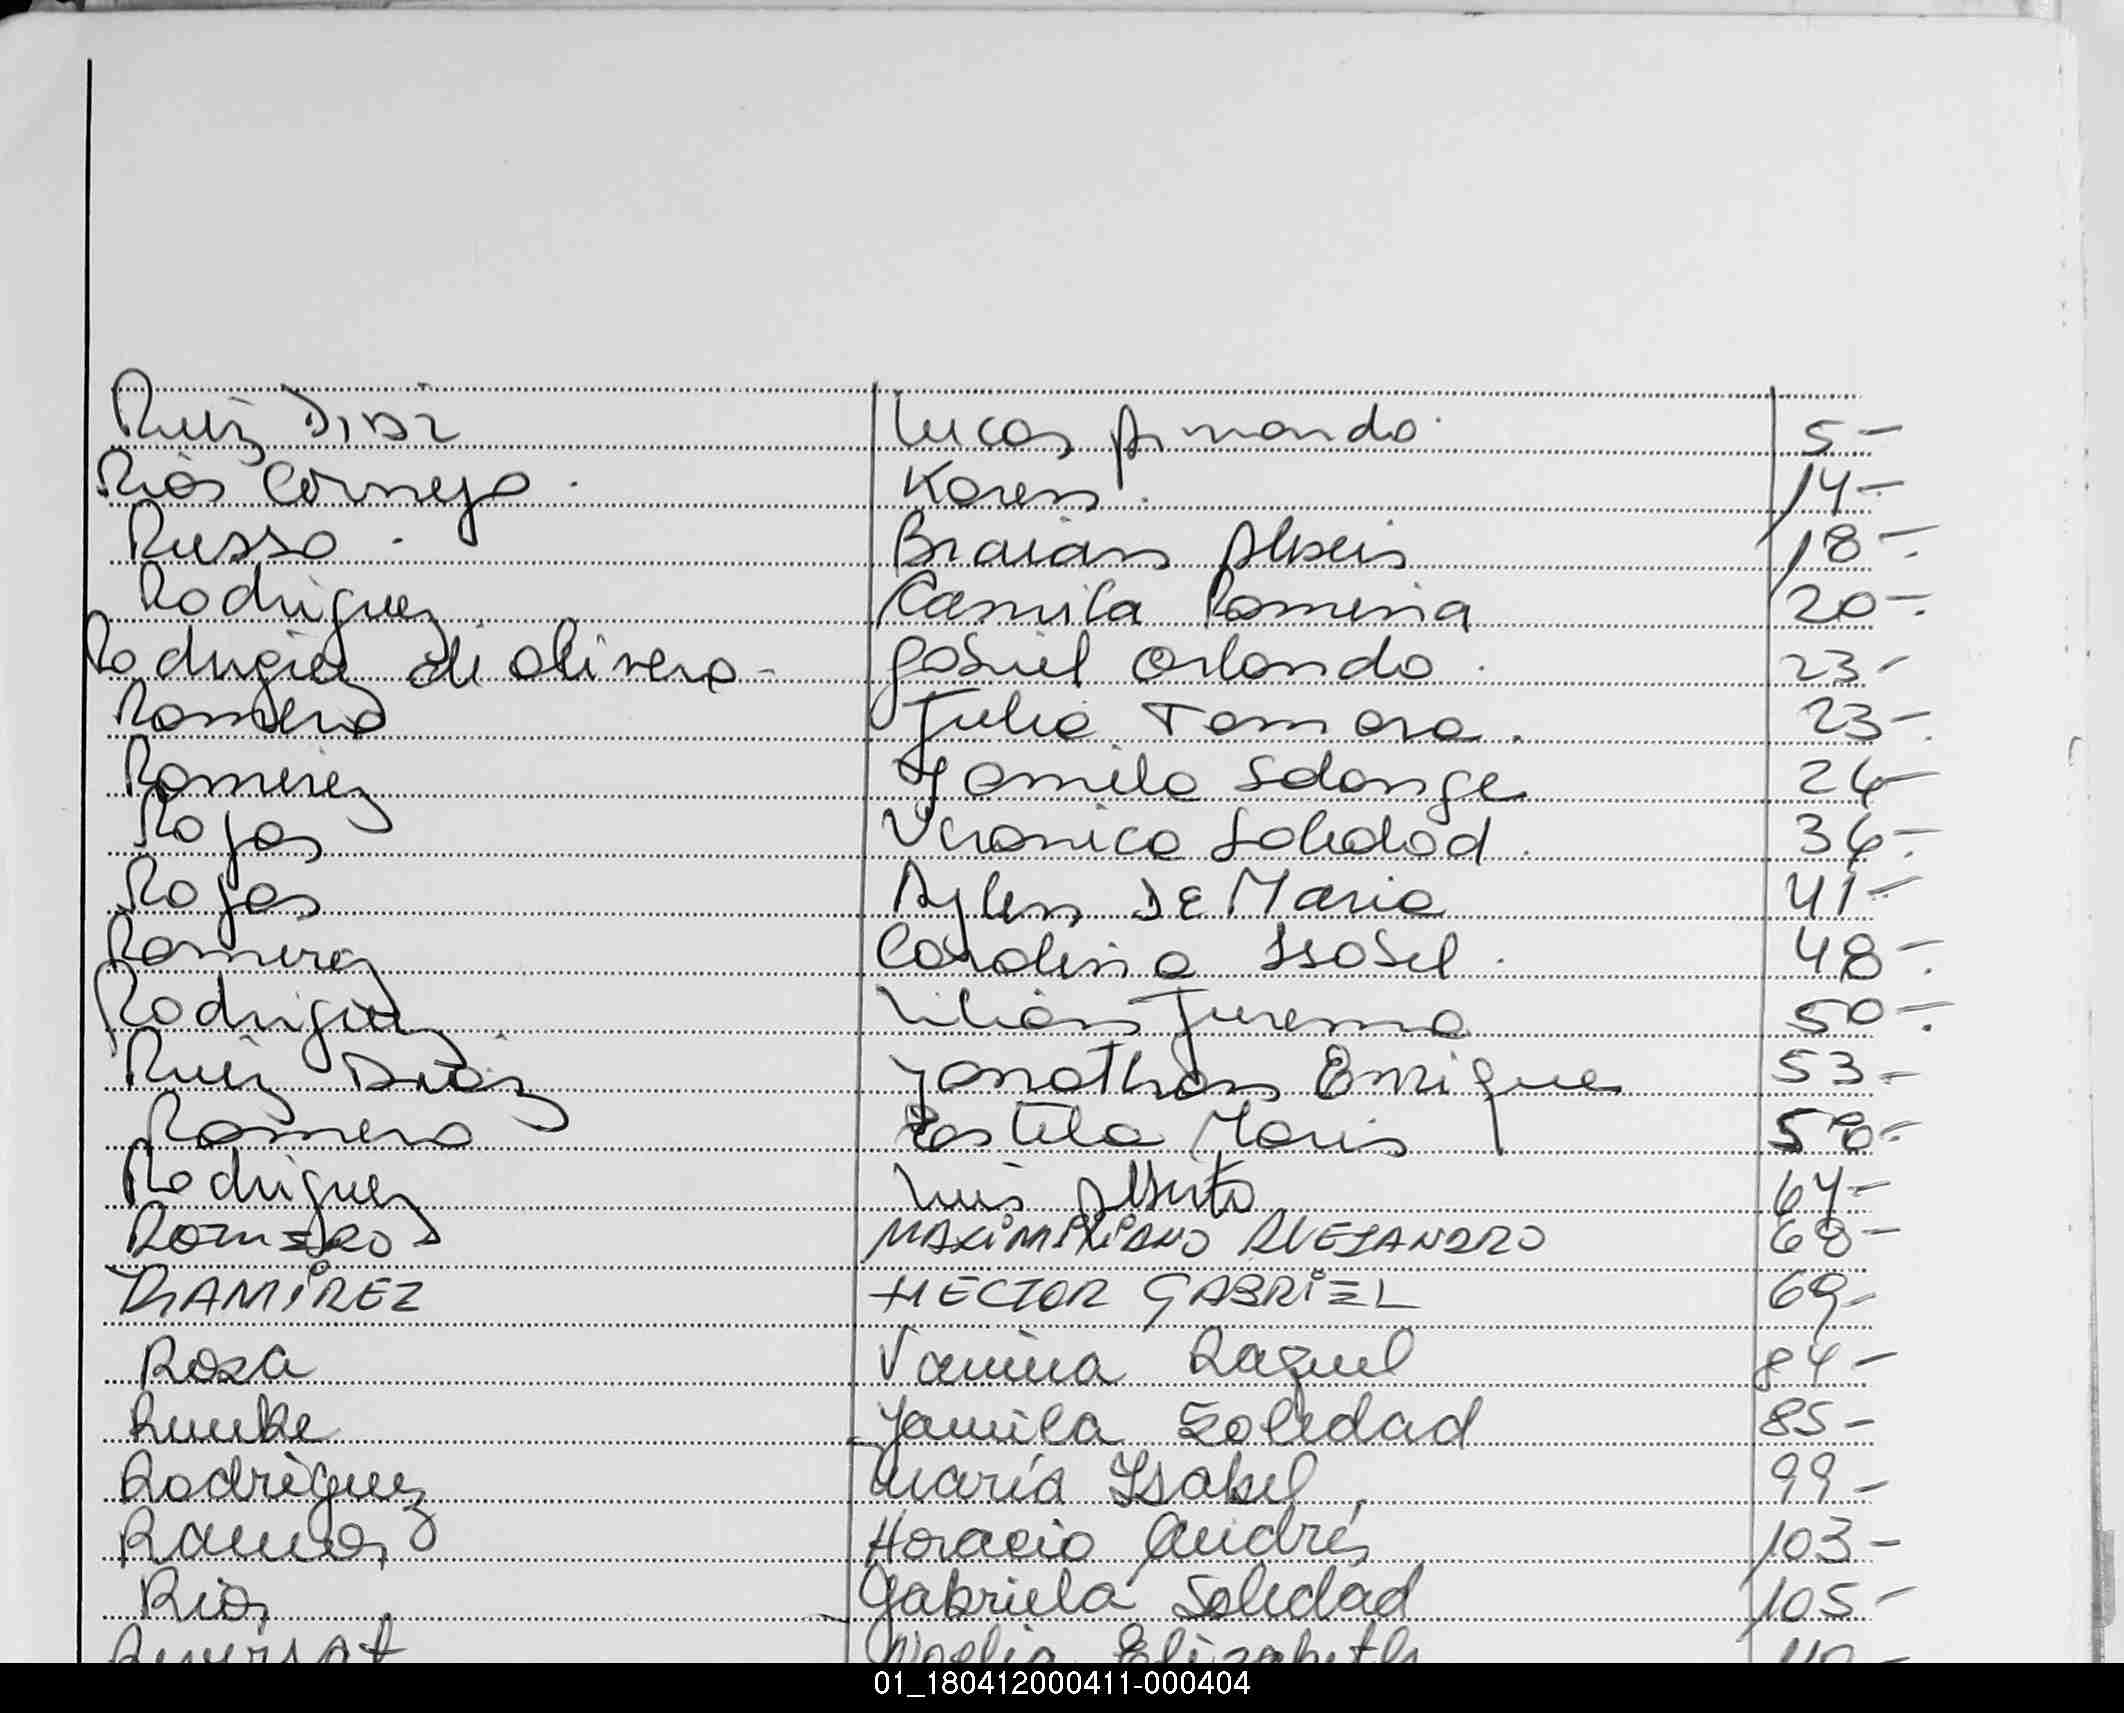 Ruiz Diaz Lucas Armando. 5-
Rios Cornejo. Karen. 14-
Russo. Braian Alexis 18-.
Rodriguez Camila Romina 20-.
Rodriguez de Olivera- Gabriel Orlando. 23-
Romero Julia Tamara. 23-.
Ramirez Yamila Solange 24-
Rojas Veronica Soledad. 36-.
Rojas Aylen De Maria 41-
Ramirez Carolina Isabel. 48-.
Rodriguez Lilian Jurema 50-.
Ruiz Diaz Jonathan Enrique 53-
Romero Estela Maris
Rodriguez Luis Alberto 64-
ROMERO MAXIMILIANO ALEJANDRO 68-
RAMIREZ HECTOR GABRIEL 69-
Rosa Vanina Raquel 84-
Runke Yamila Soledad 85-
Rodríguez María Isabel 99-
Ramos Horacio Andrés 103-
Rios Gabriela Soledad 105-
Noelia Elizabeth
01_180412000411-000404